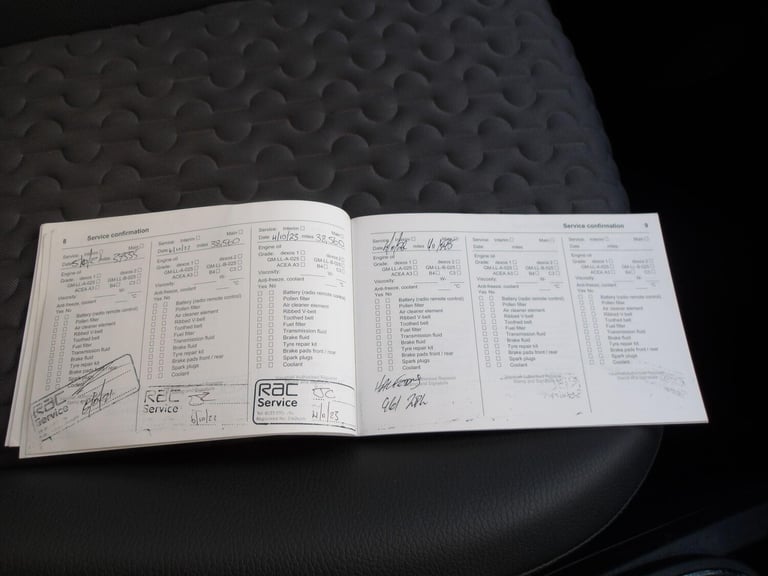 8 Service confirmation
Service: Interim Main
Date miles
Engine oil
Grade: dexos 1 dexos 2
GM-LL-A-025 GM-LL-B-025
ACEA A3 B4 C3
Viscosity: W-
Anti-freeze, coolant °C
Yes No
Battery (radio remote control)
Pollen filter
Air cleaner element
Ribbed V-belt
Toothed belt
Fuel filter
Transmission fluid
Brake fluid
Tyre repair kit
Brake pads front / rear
Spark plugs
RAC
Service
Service: Interim Main
Date 6/10/22 miles 38,560
Engine oil
Grade: dexos 1 dexos 2
GM-LL-A-025 GM-LL-B-025
ACEA A3 B4 C3
Viscosity: W-
Anti-freeze, coolant °C
Yes No
Battery (radio remote control)
Pollen filter
Air cleaner element
Ribbed V-belt
Toothed belt
Fuel filter
Transmission fluid
Brake fluid
Tyre repair kit
Brake pads front / rear
Spark plugs
Coolant
RAC
Service
6/10/22
Service: Interim Main
Date 4/10/23 miles 38,560
Engine oil
Grade: dexos 1 dexos 2
GM-LL-A-025 GM-LL-B-025
ACEA A3 B4 C3
Viscosity: W-
Anti-freeze, coolant °C
Yes No
Battery (radio remote control)
Pollen filter
Air cleaner element
Ribbed V-belt
Toothed belt
Fuel filter
Transmission fluid
Brake fluid
Tyre repair kit
Brake pads front / rear
Spark plugs
Coolant
RAC
Service
4/10/23
Service confirmation 9
Service: Interim
Date miles
Engine oil
Grade: dexos 1 dexos 2
GM-LL-A-025 GM-LL-B-025
ACEA A3 B4 C3
Viscosity: W-
Anti-freeze, coolant °C
Yes No
Battery (radio remote control)
Pollen filter
Air cleaner element
Ribbed V-belt
Toothed belt
Fuel filter
Transmission fluid
Brake fluid
Tyre repair kit
Brake pads front / rear
Spark plugs
Coolant
Service: Interim Main
Date miles
Engine oil
Grade: dexos 1 dexos 2
GM-LL-A-025 GM-LL-B-025
ACEA A3 B4 C3
Viscosity: W-
Anti-freeze, coolant °C
Yes No
Battery (radio remote control)
Pollen filter
Air cleaner element
Ribbed V-belt
Toothed belt
Fuel filter
Transmission fluid
Brake fluid
Tyre repair kit
Brake pads front / rear
Spark plugs
Coolant
Service: Interim Main
Date miles
Engine oil
Grade: dexos 1 dexos 2
GM-LL-A-025 GM-LL-B-025
ACEA A3 B4 C3
Viscosity: W-
Anti-freeze, coolant °C
Yes No
Battery (radio remote control)
Pollen filter
Air cleaner element
Ribbed V-belt
Toothed belt
Fuel filter
Transmission fluid
Brake fluid
Tyre repair kit
Brake pads front / rear
Spark plugs
Coolant